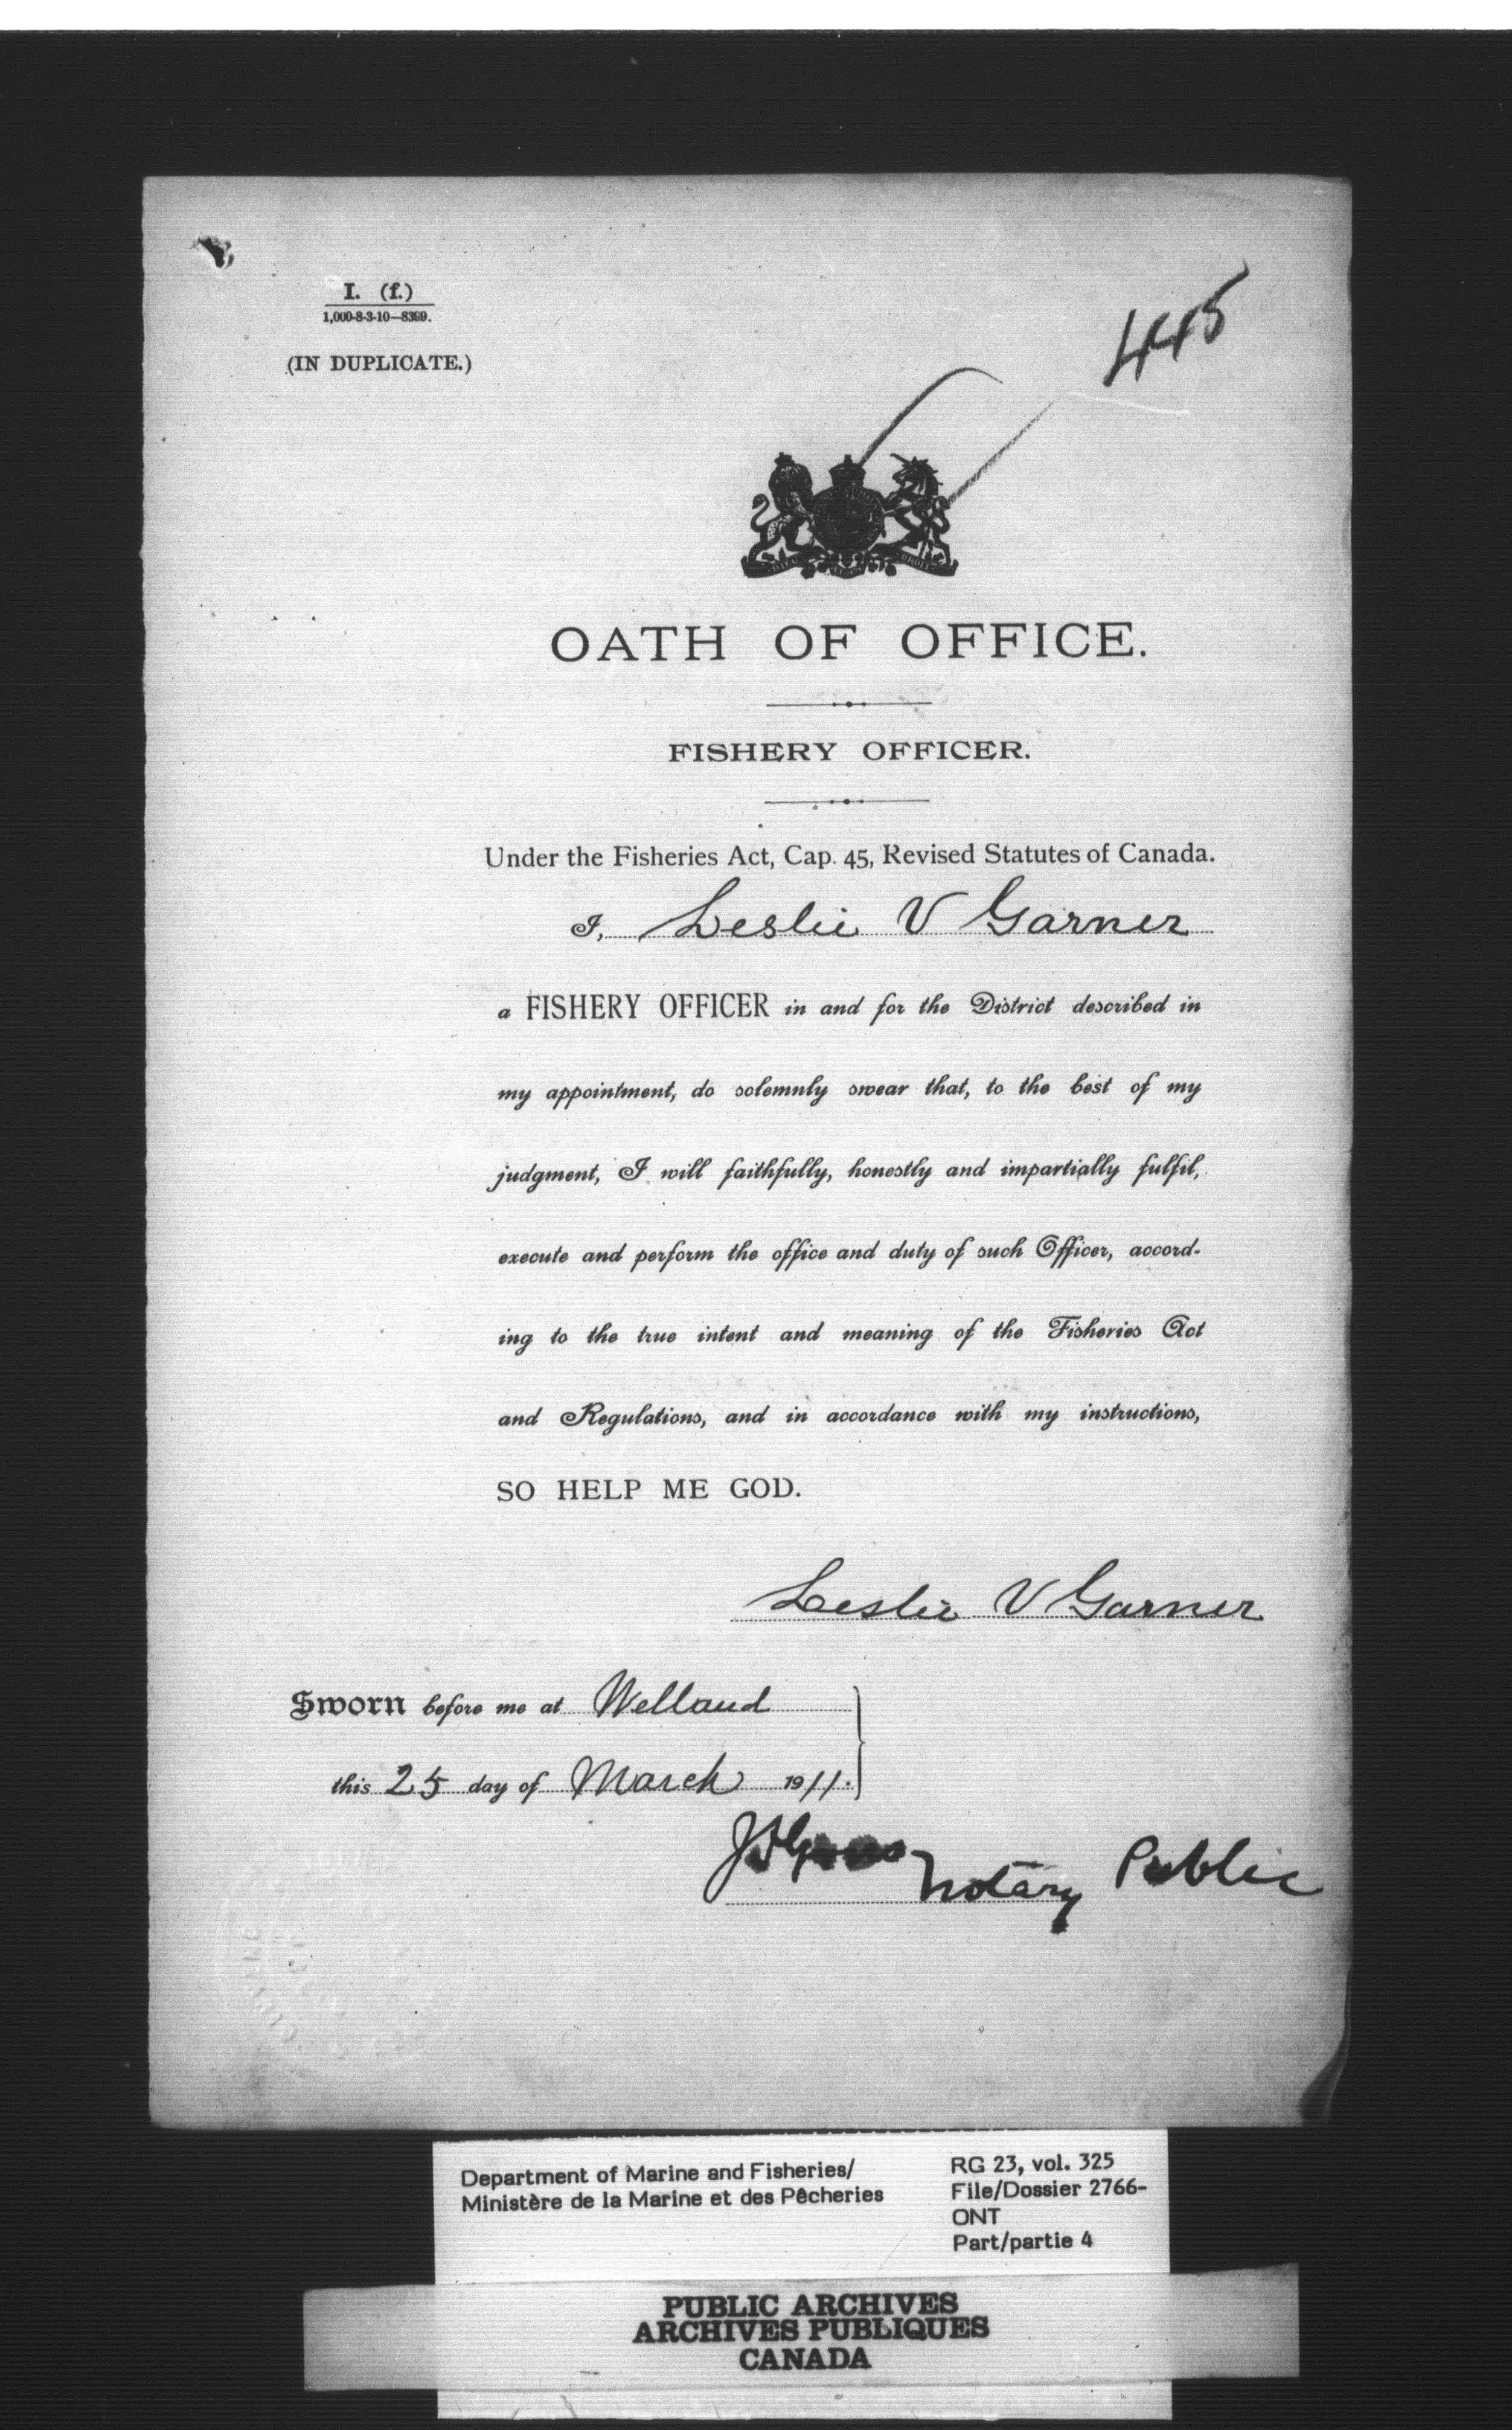 I. (f.)
1,000-8-3-10—8399.
(IN DUPLICATE.)
445
OATH OF OFFICE.
FISHERY OFFICER.
Under the Fisheries Act, Cap. 45, Revised Statutes of Canada.
I, Leslie V Garner
a FISHERY OFFICER in and for the District described in
my appointment, do solemnly swear that, to the best of my
judgment, I will faithfully, honestly and impartially fulfil,
execute and perform the office and duty of such Officer, accord-
ing to the true intent and meaning of the Fisheries Act
and Regulations, and in accordance with my instructions,
SO HELP ME GOD.
Leslie V Garner
Sworn before me at Welland
this 25 day of March 1911.
Notary Public
Department of Marine and Fisheries/
Ministère de la Marine et des Pêcheries
RG 23, vol. 325
File/Dossier 2766-
ONT
Part/partie 4
PUBLIC ARCHIVES
ARCHIVES PUBLIQUES
CANADA